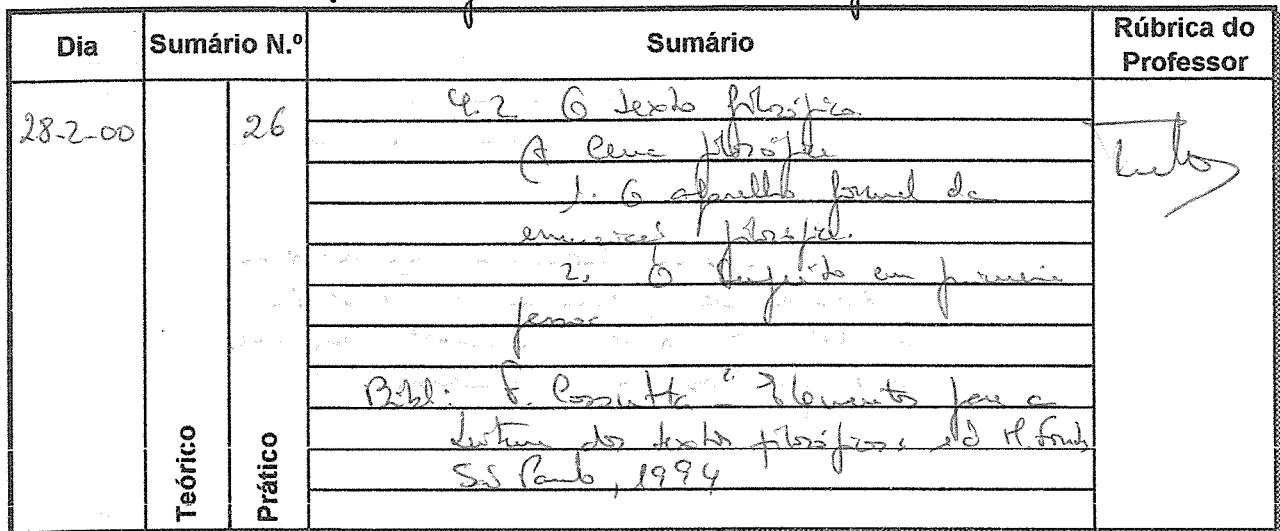 Dia Sumário N.º Sumário Rúbrica do Professor
28-2-00 26 4.2 O texto filosófico
A cena filosófica
1. O aparelho formal da
enunciação filosófica.
2. O sujeito em primeira
pessoa
Bibl: F. Cossutta "Elementos para a
Leitura dos textos filosóficos, ed M. Fontes,
S. Paulo, 1994
Teórico
Prático